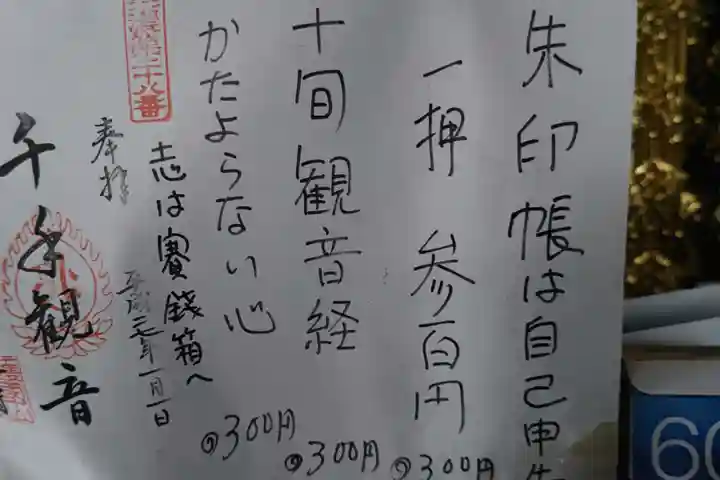 朱印帳は自己申告
一押 参百円
十旬観音経
かたよらない心
志は賽銭箱へ
@300円
@300円
@300円
二十八番
奉拝
千手観音
平成元年一月一日
60